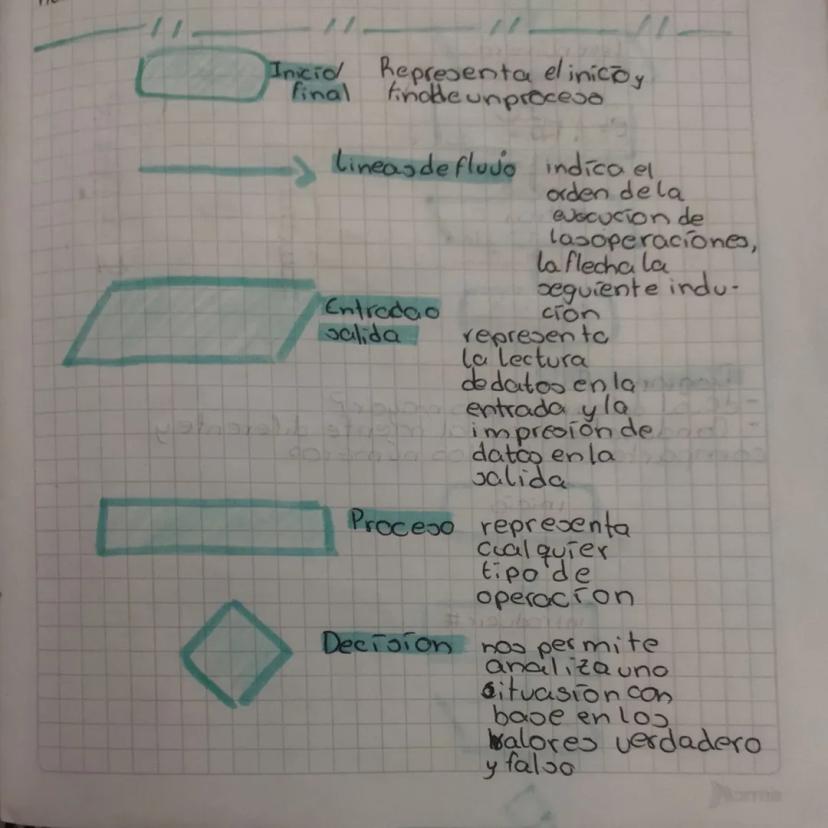 Inicio/ Representa el inicio y
final fin de un proceso
Lineas de flujo indica el
orden de la
ejecucion de
las operaciones,
la flecha la
seguiente indu-
cion
Entrada o
salida representa
la lectura
de datos en la
entrada y la
impresión de
datos en la
salida
Proceso representa
cualquier
tipo de
operación
Decisión nos permite
analiza uno
situasión con
base en los
valores verdadero
y falso
Norma